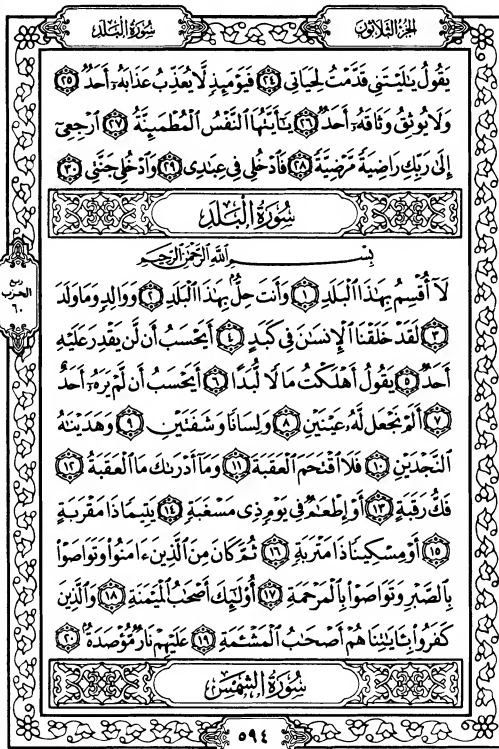 سُورَةُ البَلَدِ
الجزء الثلاثون
يَقُولُ يَٰلَيْتَنِى قَدَّمْتُ لِحَيَاتِى ٢٤ فَيَوْمَئِذٍ لَّا يُعَذِّبُ عَذَابَهُۥٓ أَحَدٌ ٢٥
وَلَا يُوثِقُ وَثَاقَهُۥٓ أَحَدٌ ٢٦ يَٰٓأَيَّتُهَا ٱلنَّفْسُ ٱلْمُطْمَئِنَّةُ ٢٧ ٱرْجِعِىٓ
إِلَىٰ رَبِّكِ رَاضِيَةً مَّرْضِيَّةً ٢٨ فَٱدْخُلِى فِى عِبَٰدِى ٢٩ وَٱدْخُلِى جَنَّتِى ٣٠
سُورَةُ البَلَدِ
بِسْمِ ٱللَّهِ ٱلرَّحْمَٰنِ ٱلرَّحِيمِ
لَآ أُقْسِمُ بِهَٰذَا ٱلْبَلَدِ ١ وَأَنتَ حِلٌّۢ بِهَٰذَا ٱلْبَلَدِ ٢ وَوَالِدٍ وَمَا وَلَدَ
٣ لَقَدْ خَلَقْنَا ٱلْإِنسَٰنَ فِى كَبَدٍ ٤ أَيَحْسَبُ أَن لَّن يَقْدِرَ عَلَيْهِ
أَحَدٌ ٥ يَقُولُ أَهْلَكْتُ مَالًا لُّبَدًا ٦ أَيَحْسَبُ أَن لَّمْ يَرَهُۥٓ أَحَدٌ
٧ أَلَمْ نَجْعَل لَّهُۥ عَيْنَيْنِ ٨ وَلِسَانًا وَشَفَتَيْنِ ٩ وَهَدَيْنَٰهُ
ٱلنَّجْدَيْنِ ١٠ فَلَا ٱقْتَحَمَ ٱلْعَقَبَةَ ١١ وَمَآ أَدْرَىٰكَ مَا ٱلْعَقَبَةُ ١٢
فَكُّ رَقَبَةٍ ١٣ أَوْ إِطْعَٰمٌ فِى يَوْمٍ ذِى مَسْغَبَةٍ ١٤ يَتِيمًا ذَا مَقْرَبَةٍ
١٥ أَوْ مِسْكِينًا ذَا مَتْرَبَةٍ ١٦ ثُمَّ كَانَ مِنَ ٱلَّذِينَ ءَامَنُوا۟ وَتَوَاصَوْا۟
بِٱلصَّبْرِ وَتَوَاصَوْا۟ بِٱلْمَرْحَمَةِ ١٧ أُو۟لَٰٓئِكَ أَصْحَٰبُ ٱلْمَيْمَنَةِ ١٨ وَٱلَّذِينَ
كَفَرُوا۟ بِـَٔايَٰتِنَا هُمْ أَصْحَٰبُ ٱلْمَشْـَٔمَةِ ١٩ عَلَيْهِمْ نَارٌ مُّؤْصَدَةٌۢ ٢٠
سُورَةُ الشَّمْسِ
٥٩٤
ربع
الحزب
٦٠